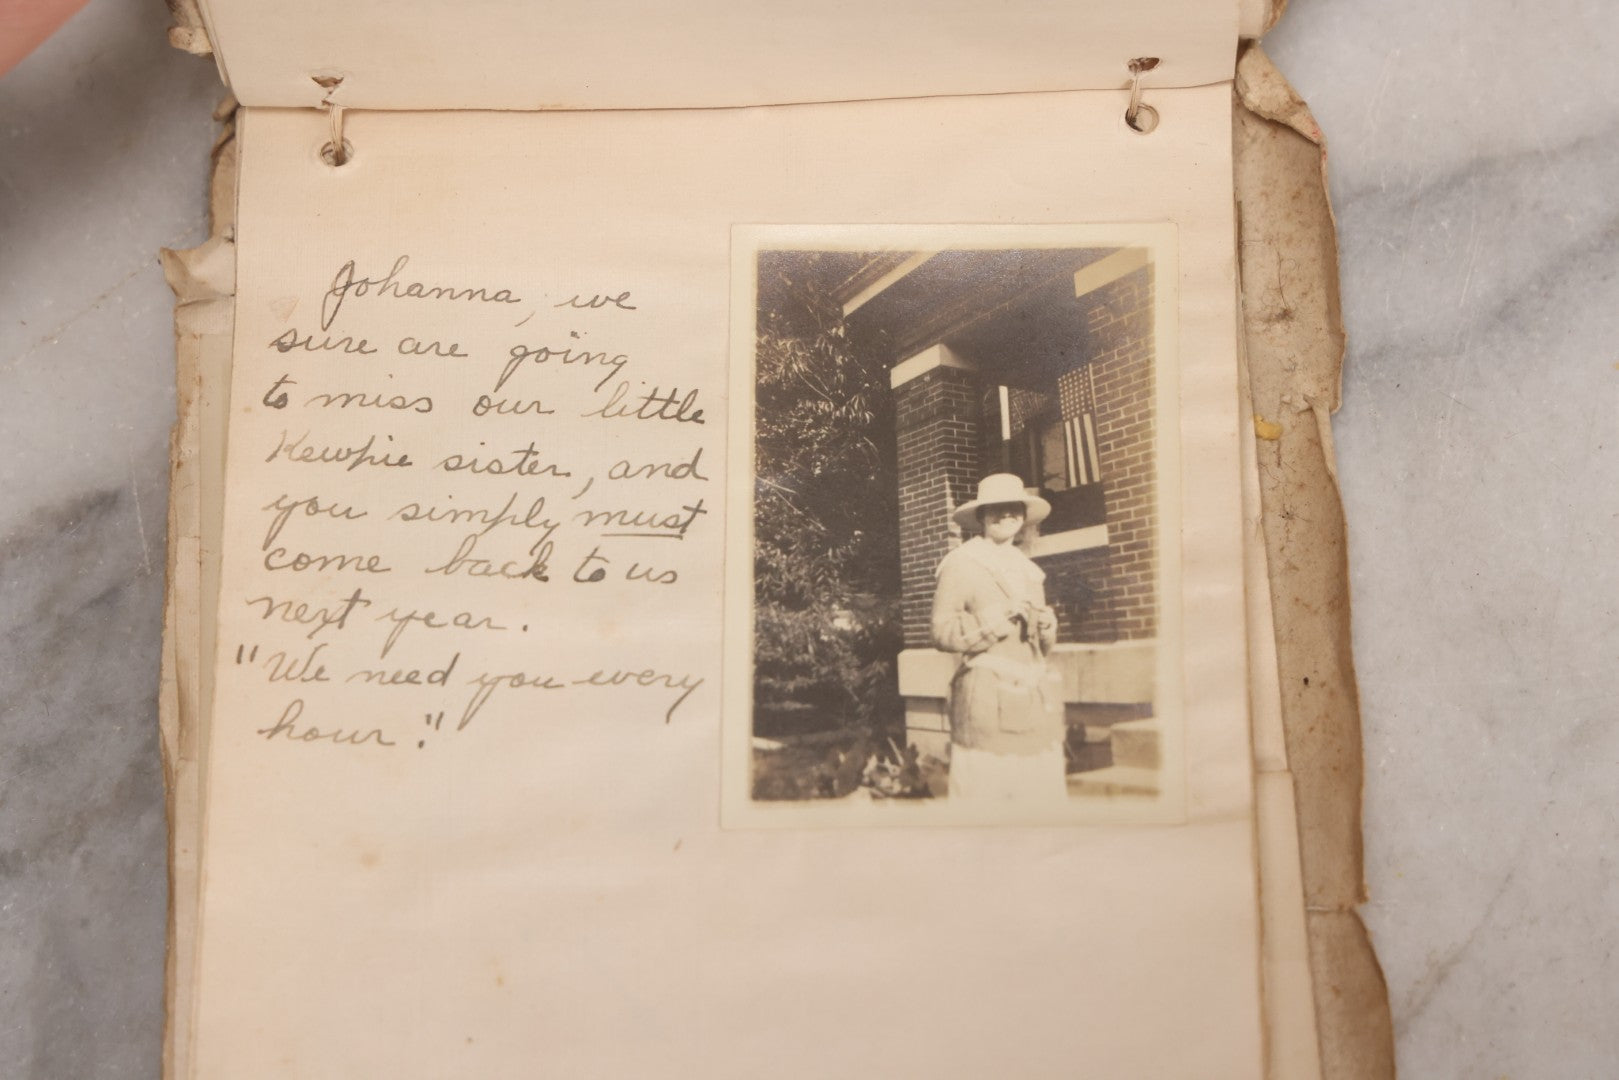 Johanna, we
sure are going
to miss our little
Kewpie sister, and
you simply must
come back to us
next year.
"We need you every
hour."